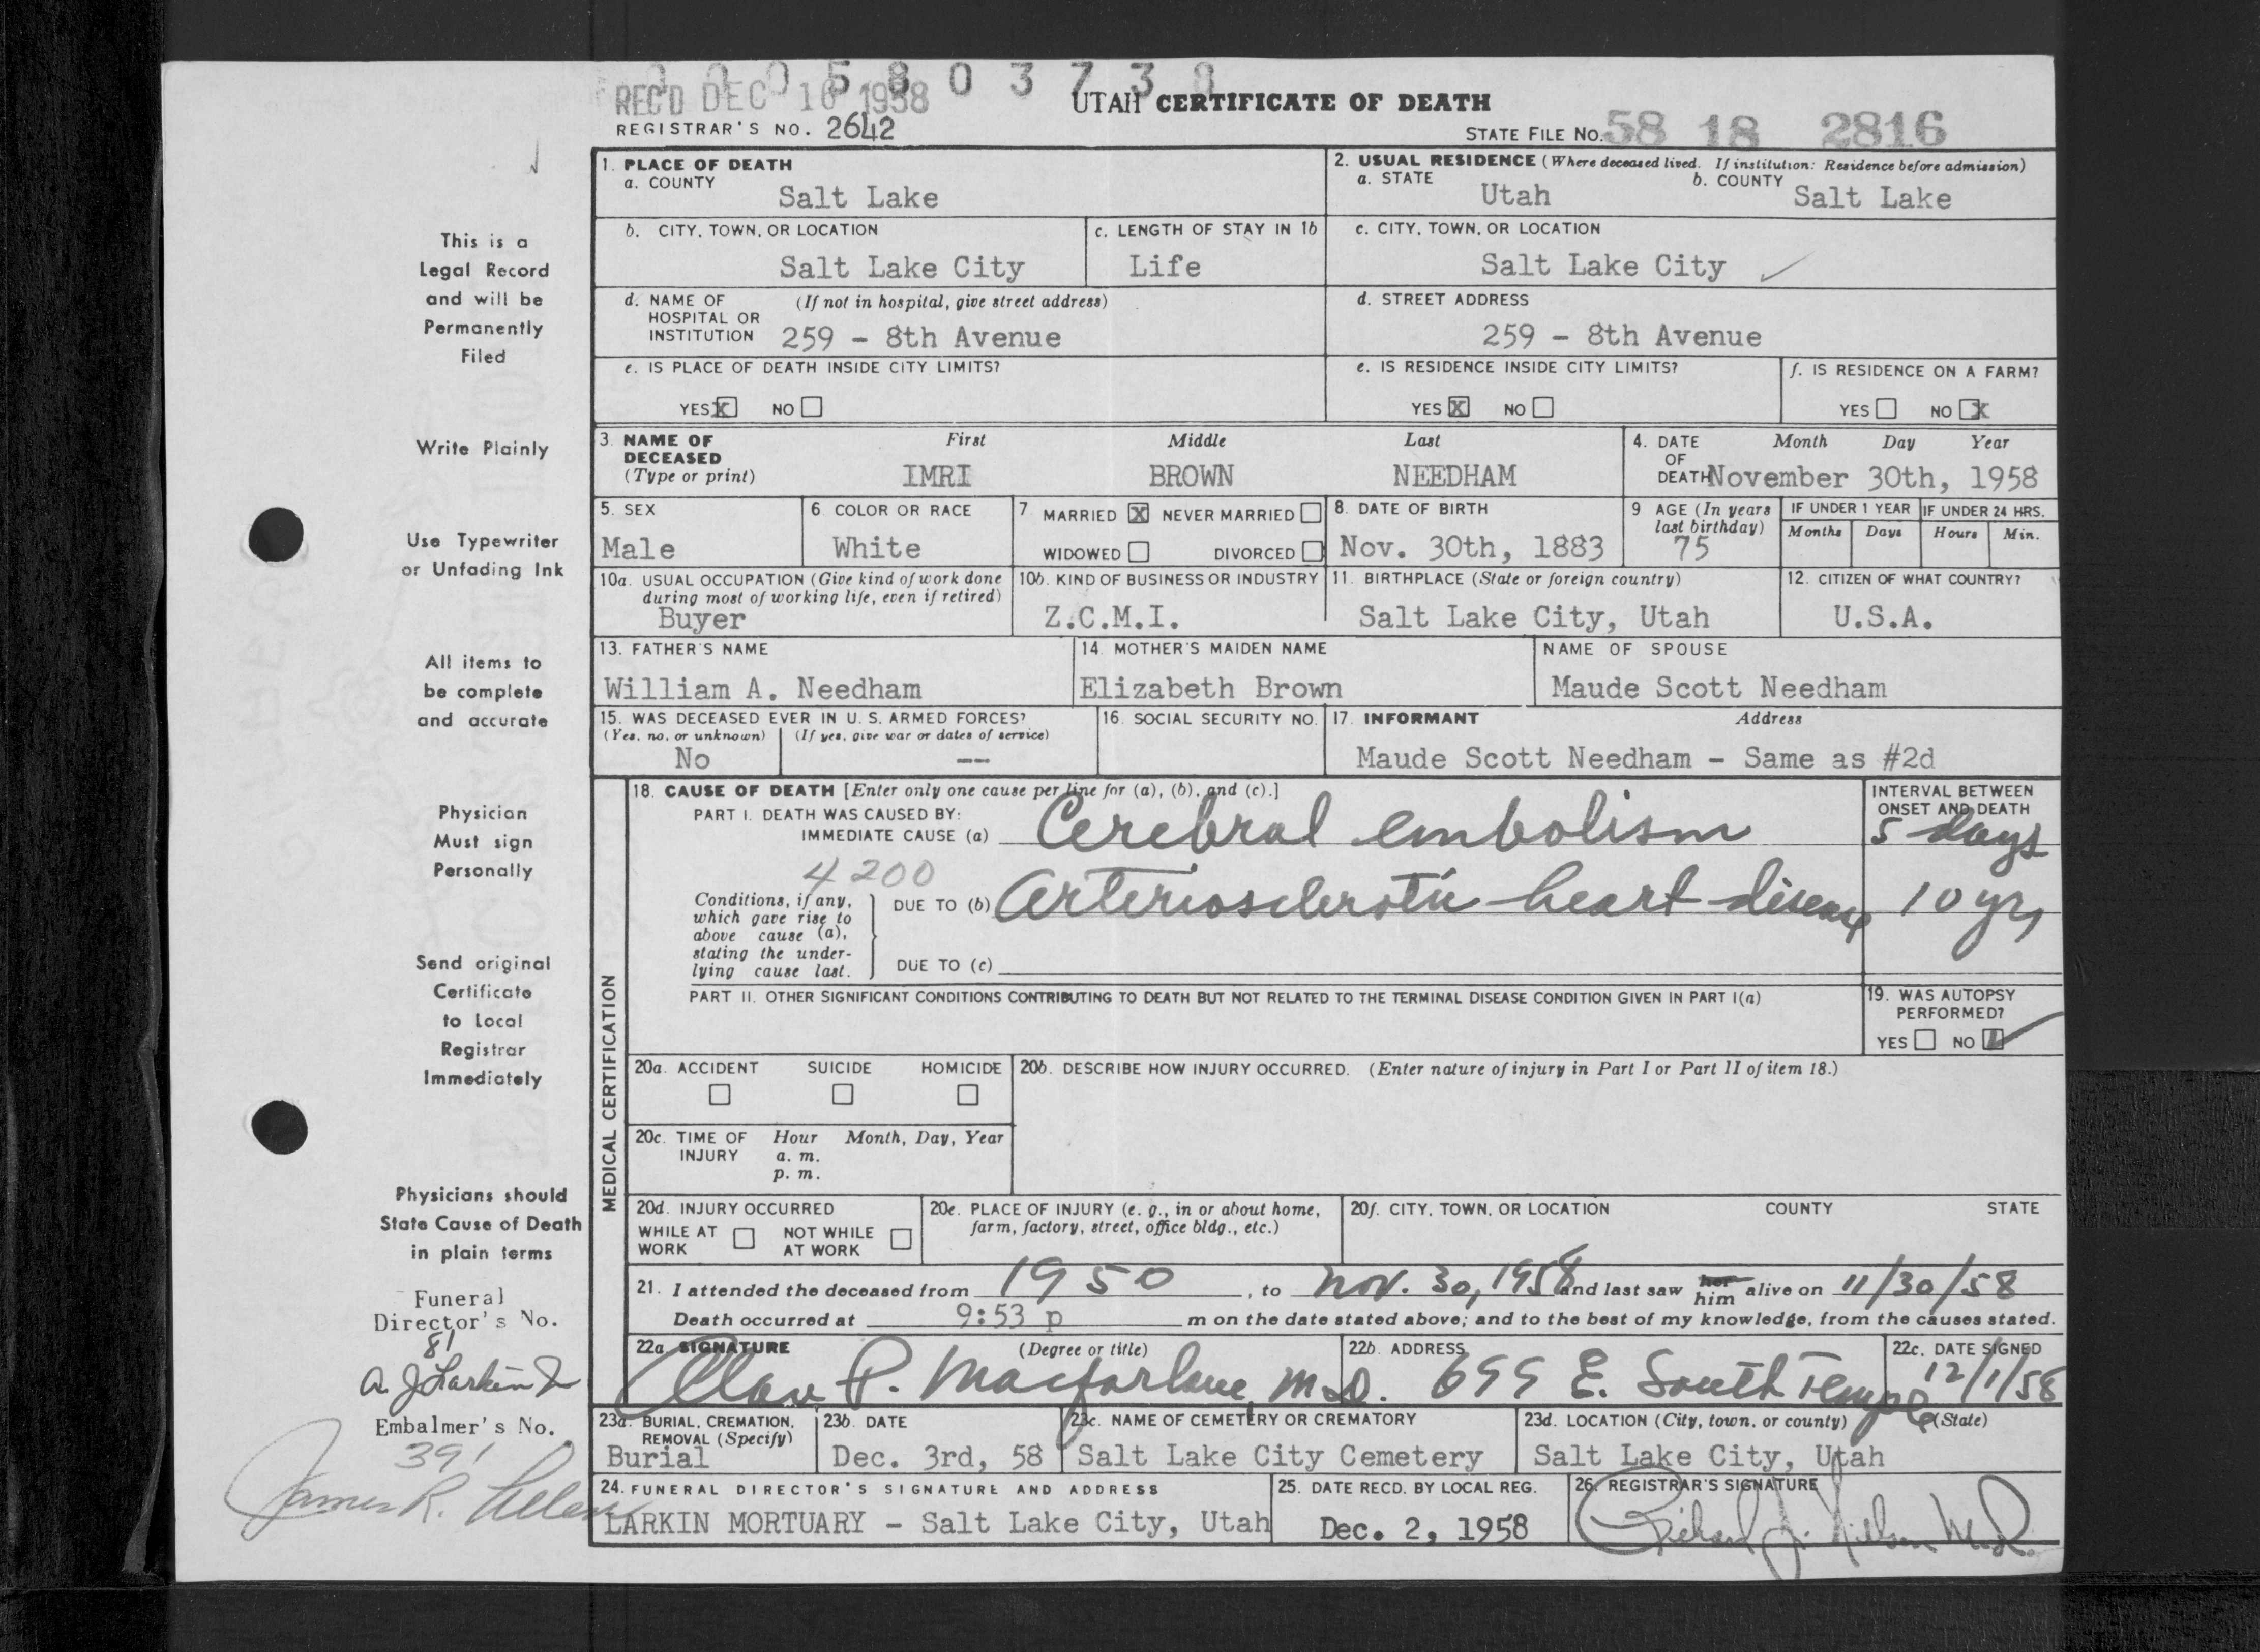 0 0 0 5 8 0 3 7 3 8
REC'D DEC 16 1958
UTAH CERTIFICATE OF DEATH
REGISTRAR'S NO. 2642
STATE FILE NO. 58 18 2816
This is a
Legal Record
and will be
Permanently
Filed
Write Plainly
Use Typewriter
or Unfading Ink
All items to
be complete
and accurate
Physician
Must sign
Personally
Send original
Certificate
to Local
Registrar
Immediately
Physicians should
State Cause of Death
in plain terms
Funeral
Director's No.
81
A. J. Larkin Jr
Embalmer's No.
391
James R.
1. PLACE OF DEATH
a. COUNTY
Salt Lake
2. USUAL RESIDENCE (Where deceased lived. If institution: Residence before admission)
a. STATE Utah b. COUNTY Salt Lake
b. CITY, TOWN, OR LOCATION
Salt Lake City
c. LENGTH OF STAY IN 1b
Life
c. CITY, TOWN, OR LOCATION
Salt Lake City ✓
d. NAME OF (If not in hospital, give street address)
HOSPITAL OR
INSTITUTION 259 - 8th Avenue
d. STREET ADDRESS
259 - 8th Avenue
e. IS PLACE OF DEATH INSIDE CITY LIMITS?
YES X NO
e. IS RESIDENCE INSIDE CITY LIMITS?
YES X NO
f. IS RESIDENCE ON A FARM?
YES NO X
3. NAME OF First Middle Last
DECEASED
(Type or print) IMRI BROWN NEEDHAM
4. DATE Month Day Year
OF
DEATH November 30th, 1958
5. SEX
Male
6. COLOR OR RACE
White
7. MARRIED X NEVER MARRIED
WIDOWED DIVORCED
8. DATE OF BIRTH
Nov. 30th, 1883
9 AGE (In years
last birthday)
75
IF UNDER 1 YEAR
Months Days
IF UNDER 24 HRS.
Hours Min.
10a. USUAL OCCUPATION (Give kind of work done
during most of working life, even if retired)
Buyer
10b. KIND OF BUSINESS OR INDUSTRY
Z.C.M.I.
11. BIRTHPLACE (State or foreign country)
Salt Lake City, Utah
12. CITIZEN OF WHAT COUNTRY?
U.S.A.
13. FATHER'S NAME
William A. Needham
14. MOTHER'S MAIDEN NAME
Elizabeth Brown
NAME OF SPOUSE
Maude Scott Needham
15. WAS DECEASED EVER IN U. S. ARMED FORCES?
(Yes, no, or unknown) (If yes, give war or dates of service)
No --
16. SOCIAL SECURITY NO.
17. INFORMANT Address
Maude Scott Needham - Same as #2d
MEDICAL CERTIFICATION
18. CAUSE OF DEATH [Enter only one cause per line for (a), (b), and (c).]
PART I. DEATH WAS CAUSED BY:
IMMEDIATE CAUSE (a) Cerebral embolism
INTERVAL BETWEEN
ONSET AND DEATH
5 days
4200
Conditions, if any,
which gave rise to
above cause (a),
stating the under-
lying cause last.
DUE TO (b) Arteriosclerotic heart disease 10 yrs
DUE TO (c)
PART II. OTHER SIGNIFICANT CONDITIONS CONTRIBUTING TO DEATH BUT NOT RELATED TO THE TERMINAL DISEASE CONDITION GIVEN IN PART I(a)
19. WAS AUTOPSY
PERFORMED?
YES NO ✓
20a. ACCIDENT SUICIDE HOMICIDE
20b. DESCRIBE HOW INJURY OCCURRED. (Enter nature of injury in Part I or Part II of item 18.)
20c. TIME OF Hour Month, Day, Year
INJURY a. m.
p. m.
20d. INJURY OCCURRED
WHILE AT NOT WHILE
WORK AT WORK
20e. PLACE OF INJURY (e. g., in or about home,
farm, factory, street, office bldg., etc.)
20f. CITY, TOWN, OR LOCATION COUNTY STATE
21. I attended the deceased from 1950, to Nov. 30, 1958 and last saw her him alive on 11/30/58
Death occurred at 9:53 p m on the date stated above; and to the best of my knowledge, from the causes stated.
22a. SIGNATURE (Degree or title)
Alan P. Macfarlane M.D.
22b. ADDRESS
699 E. South Temple
22c. DATE SIGNED
12/1/58
23a. BURIAL, CREMATION,
REMOVAL (Specify)
Burial
23b. DATE
Dec. 3rd, 58
23c. NAME OF CEMETERY OR CREMATORY
Salt Lake City Cemetery
23d. LOCATION (City, town, or county) (State)
Salt Lake City, Utah
24. FUNERAL DIRECTOR'S SIGNATURE AND ADDRESS
LARKIN MORTUARY - Salt Lake City, Utah
25. DATE RECD. BY LOCAL REG.
Dec. 2, 1958
26. REGISTRAR'S SIGNATURE
Richard J. Nielsen M.D.